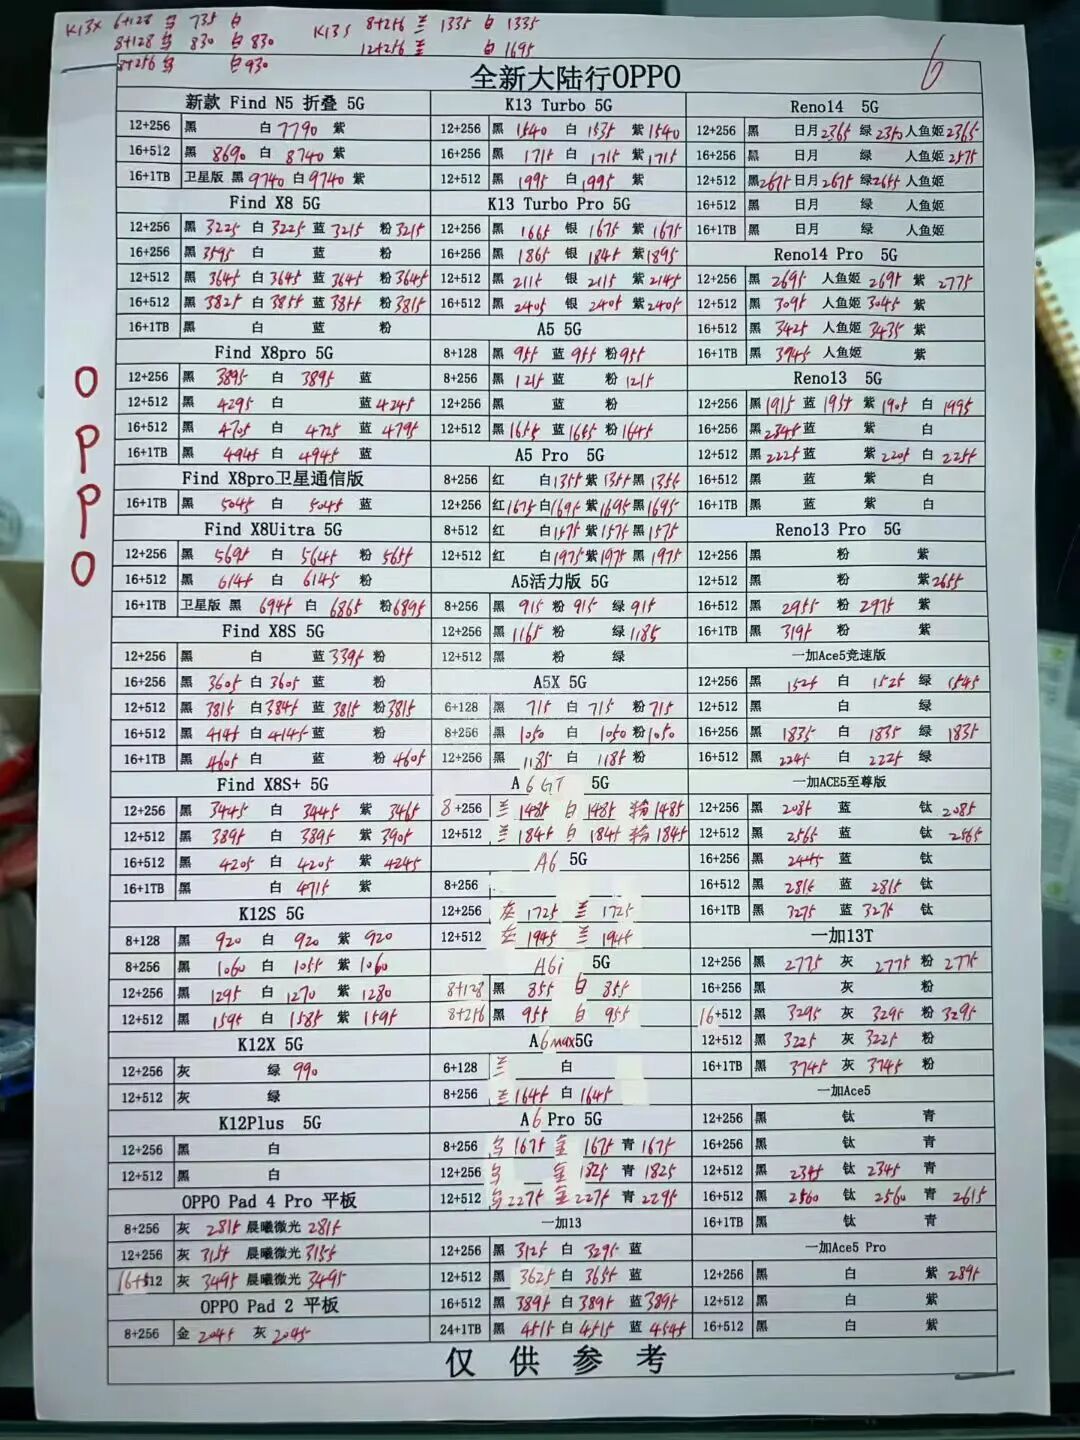 K13X 6+128 735 白
8+128 830 白 830
8+256 白 930
K13S 8+256 兰 1335 白 1335
12+256 兰 白 1695
6
OPPO
全新大陆行OPPO
新款 Find N5 折叠 5G
12+256 黑 白 7790 紫
16+512 黑 8690 白 8740 紫
16+1TB 卫星版 黑 9740 白 9740 紫
Find X8 5G
12+256 黑 3225 白 3225 蓝 3215 粉 3215
16+256 黑 3595 白 蓝 粉
12+512 黑 3645 白 3645 蓝 3645 粉 3645
16+512 黑 3825 白 3855 蓝 3855 粉 3815
16+1TB 黑 白 蓝 粉
Find X8pro 5G
12+256 黑 3895 白 3895 蓝
12+512 黑 4295 白 蓝 4245
16+512 黑 4705 白 4725 蓝 4795
16+1TB 黑 4945 白 4945 蓝
Find X8pro卫星通信版
16+1TB 黑 5045 白 5045 蓝
Find X8Uitra 5G
12+256 黑 5695 白 5645 粉 5655
16+512 黑 6145 白 6145 粉
16+1TB 卫星版 黑 6945 白 6865 粉 6895
Find X8S 5G
12+256 黑 白 蓝 3395 粉
16+256 黑 3605 白 3605 蓝 粉
12+512 黑 3815 白 3845 蓝 3815 粉 3815
16+512 黑 4145 白 4145 蓝 粉
16+1TB 黑 4605 白 蓝 粉 4605
Find X8S+ 5G
12+256 黑 3445 白 3445 紫 3465
12+512 黑 3895 白 3895 紫 3905
16+512 黑 4205 白 4205 紫 4245
16+1TB 黑 白 4715 紫
K12S 5G
8+128 黑 920 白 920 紫 920
8+256 黑 1060 白 1055 紫 1060
12+256 黑 1295 白 1270 紫 1280
12+512 黑 1595 白 1585 紫 1595
K12X 5G
12+256 灰 绿 990
12+512 灰 绿
K12Plus 5G
12+256 黑 白
12+512 黑 白
OPPO Pad 4 Pro 平板
8+256 灰 2815 晨曦微光 2815
12+256 灰 3155 晨曦微光 3155
16+512 灰 3495 晨曦微光 3495
OPPO Pad 2 平板
8+256 金 2045 灰 2045
K13 Turbo 5G
12+256 黑 1540 白 1535 紫 1540
16+256 黑 1715 白 1715 紫 1715
12+512 黑 1995 白 1995 紫
K13 Turbo Pro 5G
12+256 黑 1665 银 1675 紫 1675
16+256 黑 1865 银 1845 紫 1895
12+512 黑 2115 银 2115 紫 2145
16+512 黑 2405 银 2405 紫 2405
A5 5G
8+128 黑 955 蓝 955 粉 955
8+256 黑 1215 蓝 粉 1215
12+256 黑 蓝 粉
12+512 黑 1655 蓝 1665 粉 1645
A5 Pro 5G
8+256 红 白 1355 紫 1355 黑 1355
12+256 红 1675 白 1695 紫 1695 黑 1695
8+512 红 白 1575 紫 1575 黑 1575
12+512 红 白 1975 紫 1975 黑 1975
A5活力版 5G
8+256 黑 915 粉 915 绿 915
12+256 黑 1165 粉 绿 1185
12+512 黑 粉 绿
A5X 5G
6+128 黑 715 白 715 粉 715
8+256 黑 1050 白 1050 粉 1050
12+256 黑 1185 白 1185 粉
A 6GT 5G
8+256 兰 1485 白 1485 粉 1485
12+512 兰 1845 白 1845 粉 1845
A6 5G
8+256
12+256 灰 1725 兰 1725
12+512 灰 1945 兰 1945
A6i 5G
8+128 黑 855 白 855
8+256 黑 955 白 955
A6max5G
6+128 兰 白
8+256 兰 1645 白 1645
A6 Pro 5G
8+256 1675 金 1675 青 1675
12+256 金 1825 青 1825
12+512 2275 金 2275 青 2295
一加13
12+256 黑 3125 白 3295 蓝
12+512 黑 3625 白 3655 蓝
16+512 黑 3895 白 3895 蓝 3895
24+1TB 黑 4515 白 4515 蓝 4545
Reno14 5G
12+256 黑 日月 2365 绿 2350 人鱼姬 2365
16+256 黑 日月 绿 人鱼姬 2575
12+512 黑 2675 日月 2675 绿 2655 人鱼姬
16+512 黑 日月 绿 人鱼姬
16+1TB 黑 日月 绿 人鱼姬
Reno14 Pro 5G
12+256 黑 2695 人鱼姬 2695 紫 2775
12+512 黑 3095 人鱼姬 3045 紫
16+512 黑 3425 人鱼姬 3435 紫
16+1TB 黑 3745 人鱼姬 紫
Reno13 5G
12+256 黑 1915 蓝 1955 紫 1905 白 1995
16+256 黑 2345 蓝 紫 白
12+512 黑 2225 蓝 紫 2205 白 2255
16+512 黑 蓝 紫 白
16+1TB 黑 蓝 紫 白
Reno13 Pro 5G
12+256 黑 粉 紫
12+512 黑 粉 紫 2655
16+512 黑 2955 粉 2975 紫
16+1TB 黑 3195 粉 紫
一加Ace5竞速版
12+256 黑 1525 白 1525 绿 1545
12+512 黑 白 绿
16+256 黑 1835 白 1835 绿 1835
16+512 黑 2245 白 2225 绿
一加ACE5至尊版
12+256 黑 2085 蓝 钛 2085
12+512 黑 2565 蓝 钛 2565
16+256 黑 2445 蓝 钛
16+512 黑 2815 蓝 2815 钛
16+1TB 黑 3275 蓝 3275 钛
一加13T
12+256 黑 2775 灰 2775 粉 2775
16+256 黑 灰 粉
16+512 黑 3295 灰 3295 粉 3295
12+512 黑 3225 灰 3225 粉
16+1TB 黑 3745 灰 3745 粉
一加Ace5
12+256 黑 钛 青
16+256 黑 钛 青
12+512 黑 2345 钛 2345 青
16+512 黑 2560 钛 2560 青 2615
16+1TB 黑 钛 青
一加Ace5 Pro
12+256 黑 白 紫 2895
12+512 黑 白 紫
16+512 黑 白 紫
仅供参考